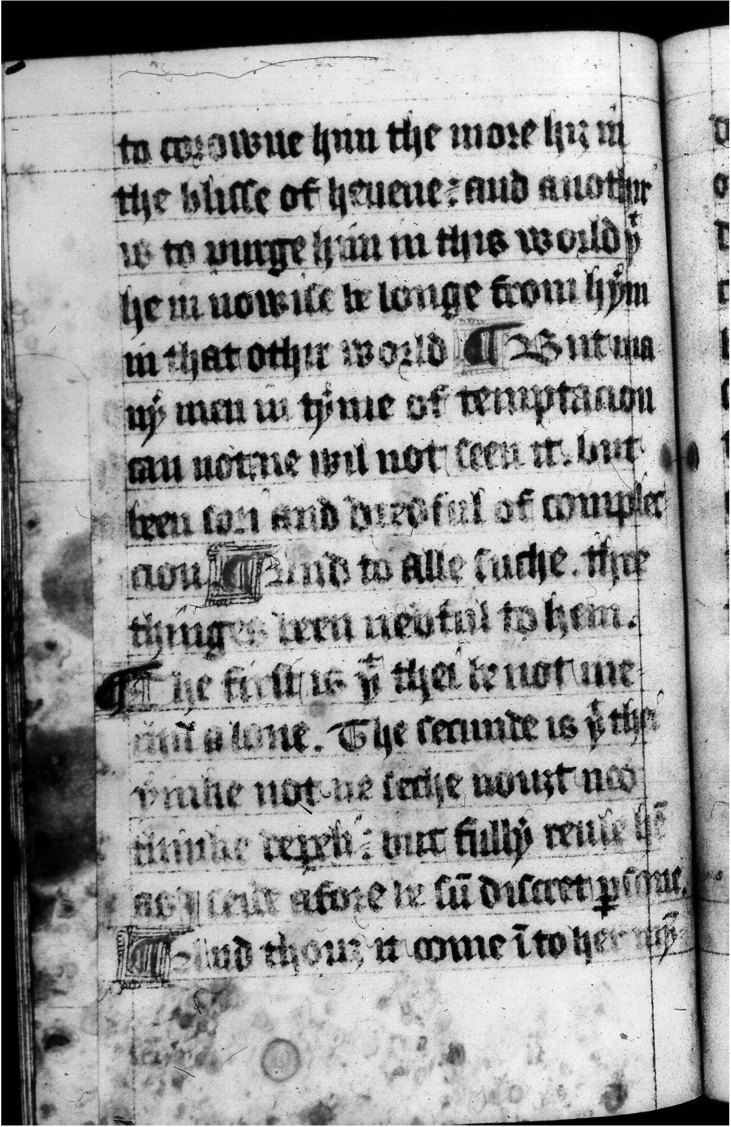 to corowne hym the more hiȝ in
the blisse of heuene: and anothir
is to purge hym in this world yͭ
he in nowise be longe from hym
in that othir world ¶ But ma
ny men in tyme of temptacion
can not ne wil not seen it. but
been sori and dredful of complec
cioun ¶ And to alle suche. thre
thinges been nedful to hem.
¶ The first is yͭ thei be not me
alone. The secunde is yͭ thei
not ne seche nouȝt noo
thinke depeli: but fulli reule hē
as I seide afore be sū discret ꝑsone.
¶ And thouȝ it come ī to her my